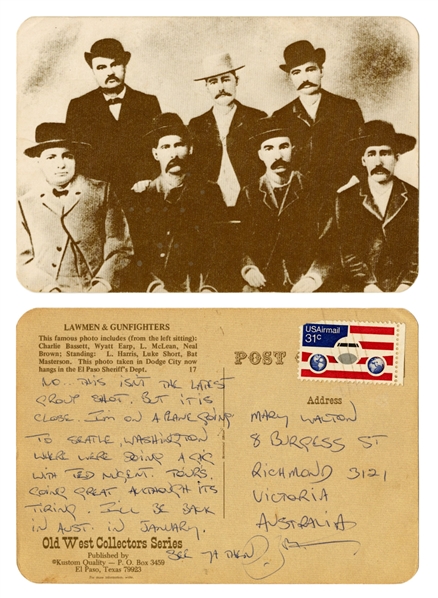 LAWMEN & GUNFIGHTERS
This famous photo includes (from the left sitting):
Charlie Bassett, Wyatt Earp, L. McLean, Neal
Brown; Standing: L. Harris, Luke Short, Bat
Masterson. This photo taken in Dodge City now
hangs in the El Paso Sheriff's Dept. 17
NO. THIS ISN'T THE LATEST
GROUP SHOT. BUT IT IS
CLOSE. I'M ON A PLANE GOING
TO SEATLE, WASHINGTON
WHERE WERE DOING A GIG
WITH TED NUGENT. TOURS
GOING GREAT ALTHOUGH ITS
TIRING. I'LL BE BACK
IN AUST. IN JANUARY.
SEE YA THEN
Old West Collectors Series
Published by
Kustom Quality — P. O. Box 3459
El Paso, Texas 79923
POST
USAirmail
31c
Address
MARY WALTON
8 BURGESS ST
RICHMOND 3121
VICTORIA
AUSTRALIA